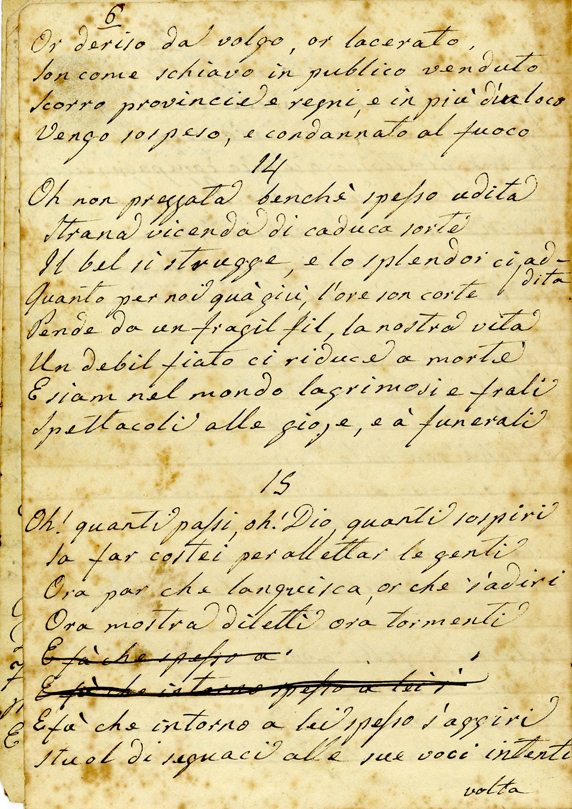 6
Or deriso da volgo, or lacerato,
Son come schiavo in publico venduto
Scorro provincie e regni, e in più d'un loco
Vengo sospeso, e condannato al fuoco
14
Oh non prezzata benchè spesso udita
Strana vicenda di caduca sorte
Il bel si strugge, e lo splendor ci ad-
dita
Quanto per noi quà giù, l'ore son corte
Pende da un fragil fil, la nostra vita
Un debil fiato ci riduce a morte
E siam nel mondo lagrimosi e frali
Spettacoli alle gioje, e à funerali
15
Oh! quanti passi, oh! Dio, quanti sospiri
Sa far costei per allettar le genti
Ora par che languisca, or che s'adiri
Ora mostra diletti ora tormenti
E fà che spesso a
E fà che intorno spesso a lei s'
E fa' che intorno a lei spesso s'aggiri
Stuol di seguaci alle sue voci intenti
volta